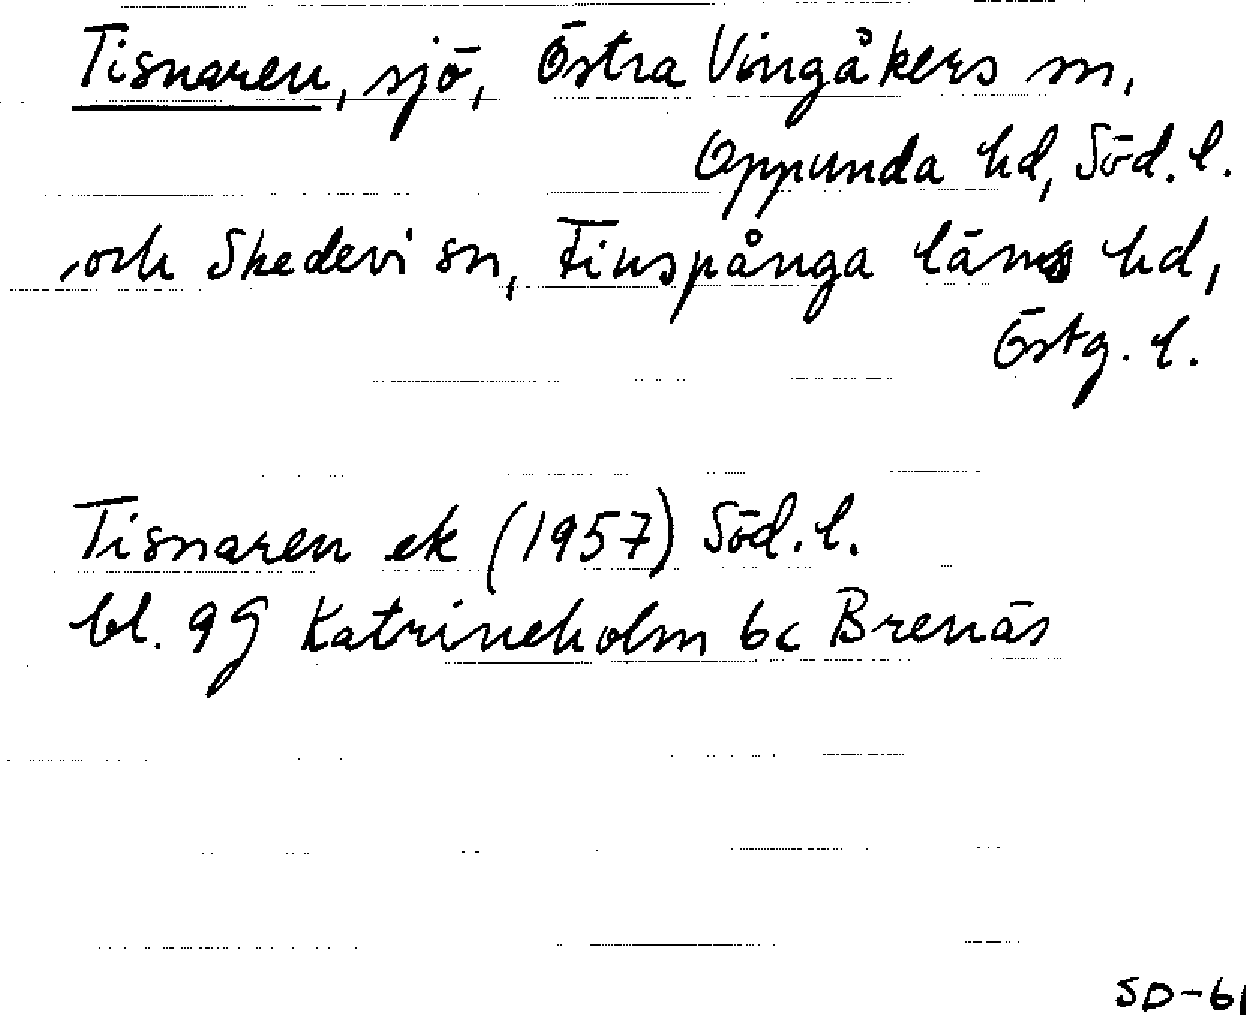 Tisnaren, sjö, Östra Vingåkers sn,
Oppunda hd, Söd. l.
och Skedevi sn, Finspånga läns hd,
Östg. l.
Tisnaren ek (1957) Söd. l.
bl. 9G Katrineholm 6c Brenäs
SD-61